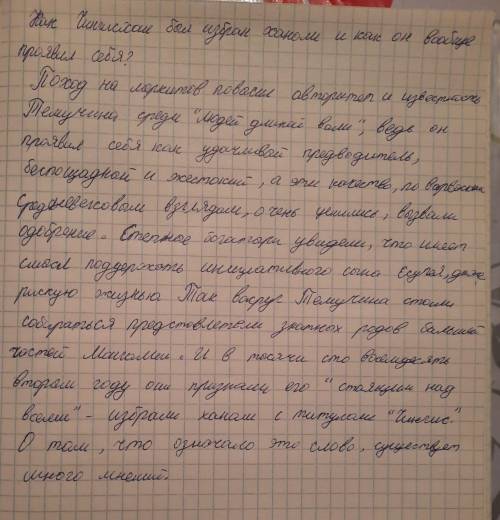 Как Чингисхан был избран ханом и как он вообще
проявил себя?
Поход на меркитов повысил авторитет и известность
Темучина среди "людей длинной воли", ведь он
проявил себя как удачливый предводитель,
беспощадной и жестокий, а эти качества, по варварским
средневековым взглядам, очень ценились, вызвали
одобрение. Степные богатыри увидели, что имеет
смысл поддержать инициативного сына Есугея, даже
рискуя жизнью Так вокруг Темучина стали
собираться представители знатных родов большей
частей Монголии. И в тысячи сто восемдесять
втором году они признали его "стоящим над
всеми" - избрали ханом с титулом "Чингис".
О том, что означало это слово, существует
много мнений.